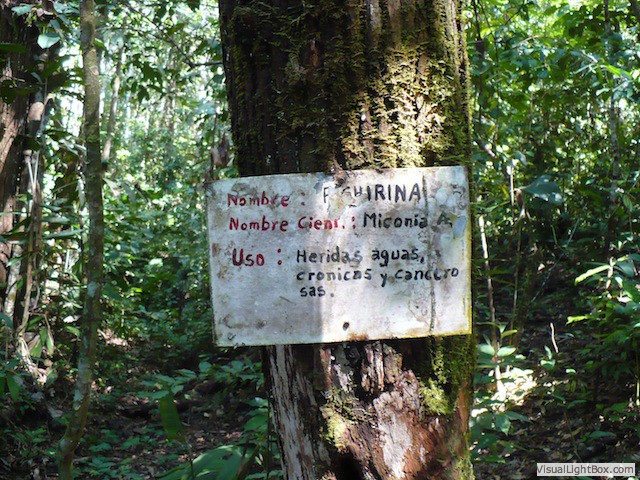 Nombre: P GHIRINA
Nombre Cient.: Miconia A.
Uso: Heridas aguas,
cronicas y cancero
sas.
VisualLightBox.com